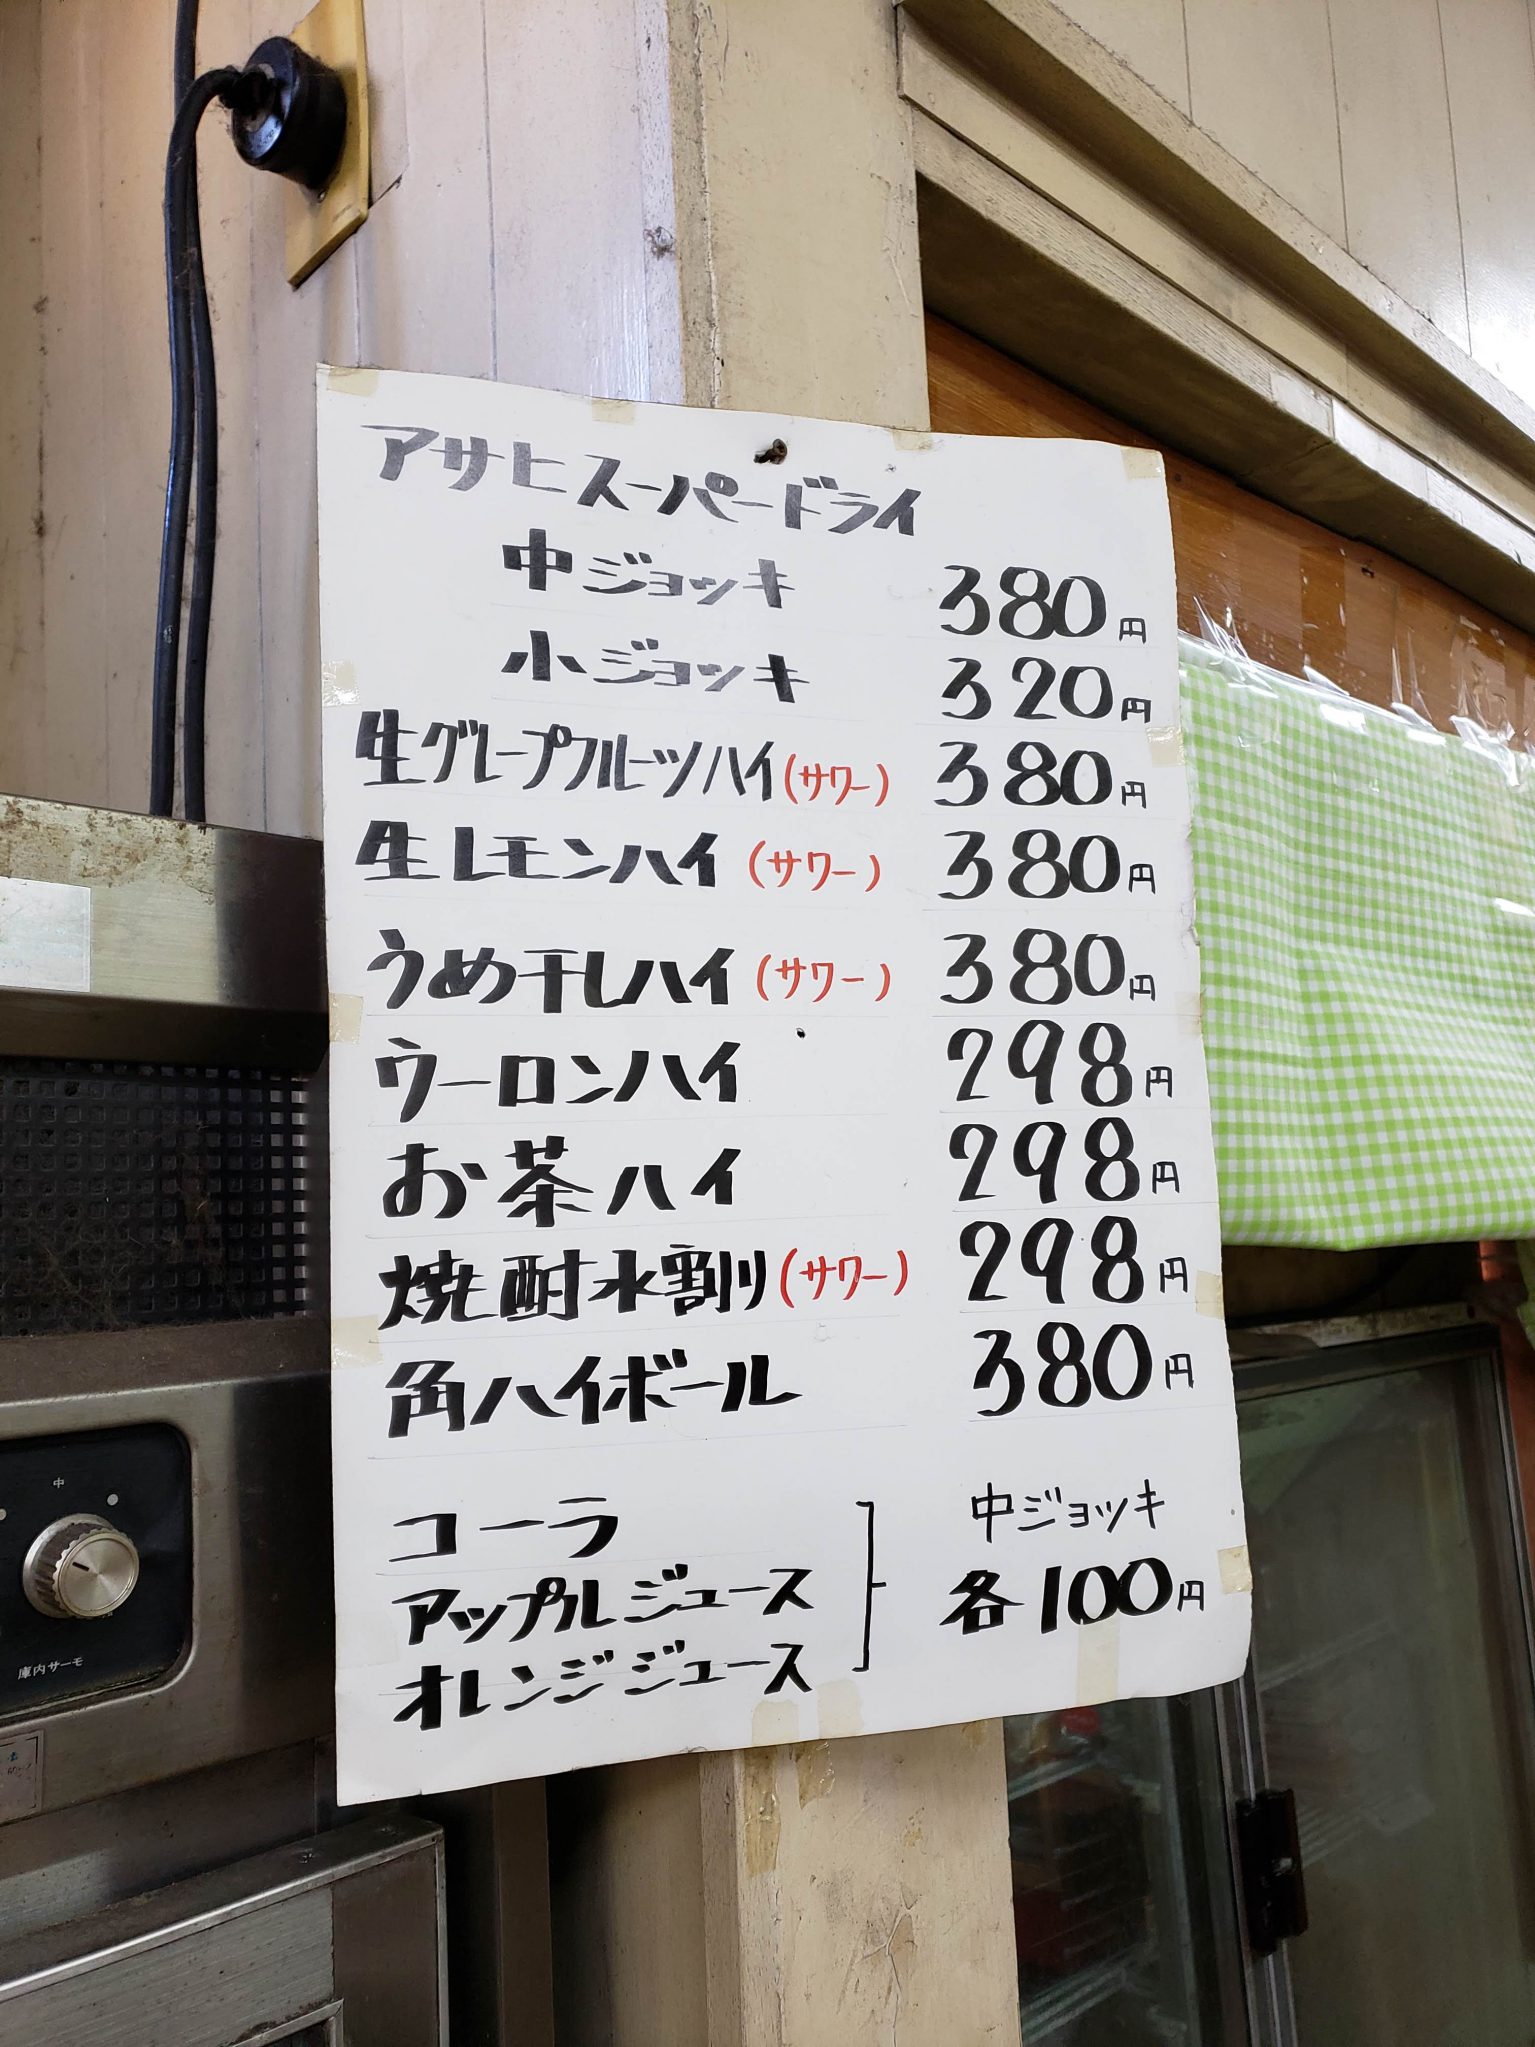 アサヒスーパードライ
中ジョッキ 380円
小ジョッキ 320円
生グレープフルーツハイ(サワー) 380円
生レモンハイ(サワー) 380円
うめ干しハイ(サワー) 380円
ウーロンハイ 298円
お茶ハイ 298円
焼酎水割り(サワー) 298円
角ハイボール 380円
コーラ
アップルジュース
オレンジジュース
中ジョッキ
各100円
中
庫内サーモ